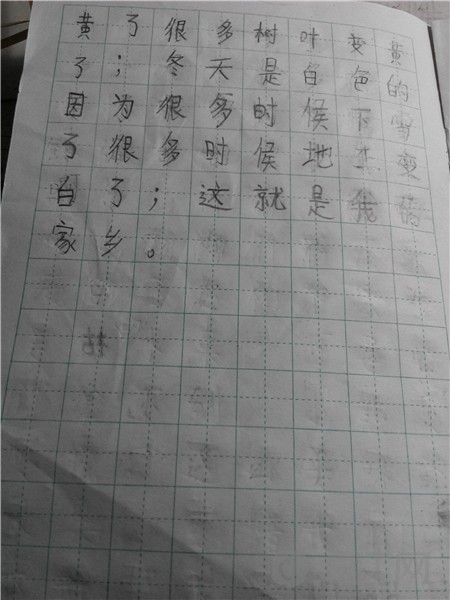 黄了很多树叶变黄
了；冬天是白色的
因为很多时候下雪
了很多时候地上变
白了；这就是我
家乡。